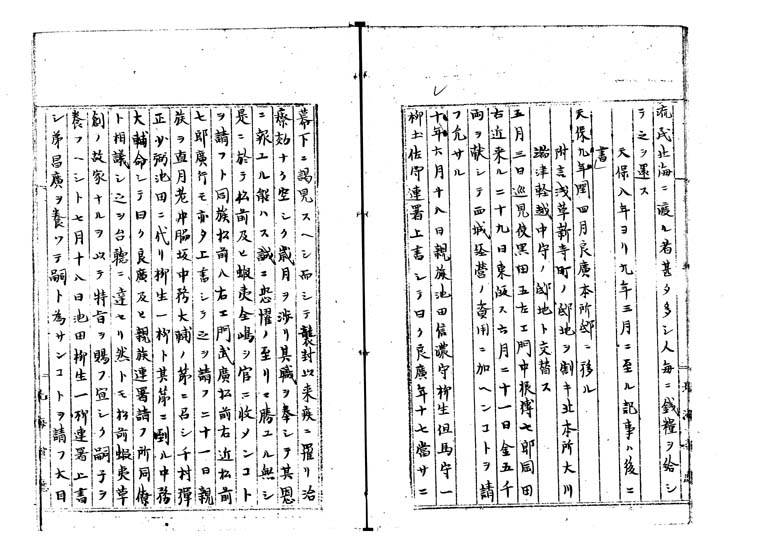 流民北海ニ渡ル者甚タ多シ人毎ニ錢糧ヲ給シ
テ之ヲ還ス
天保八年ヨリ九年三月ニ至ル記事ハ後ニ
書
天保九年閏四月良廣本所邸ニ移ル
附言浅草新寺町ノ邸地ヲ割キ北本所大川
端津輕越中守ノ邸地ト交替ス
五月三日巡見使黒田五左エ門中根傳七郎岡田
右近来ル二十九日東歸ス六月二十一日金五千
両ヲ献シテ西城營ノ費用ニ加ヘンコトヲ請
フ允サル
十年六月十八日親族池田信濃守柳生但馬守一
柳土佐守連署上書シテ曰ク良廣年十七當サニ
幕下ニ謁見スヘシ而シテ襲封以来疾ニ罹リ治
療効ナク空シク歳月ヲ渉リ其職ヲ奉シテ其恩
ニ報エル能ハス誠ニ恐懼ノ至リニ勝エル無シ
是ニ於テ松前及ヒ蝦夷全嶋ヲ官ニ收メンコト
ヲ請フト同族松前八右エ門武廣松前右近松前
七郎廣行モ亦タ上書シテ之ヲ請フ二十一日親
族ヲ直月老中脇坂中務大輔ノ第ニ召シ千村彈
正少弼池田ニ代リ柳生一柳ト其第ニ到ル中務
大輔命シテ曰ク良廣及ヒ親族連署請フ所同僚
ト相議シ之ヲ台聽ニ達セリ然トモ松前蝦夷草
創ノ故家ナルヲ以テ特旨ヲ賜フ宣シク嗣子ヲ
養フヘシト七月十八日池田柳生一柳連署上書
シ弟昌廣ヲ養ツテ嗣ト為サンコトヲ請フ大目